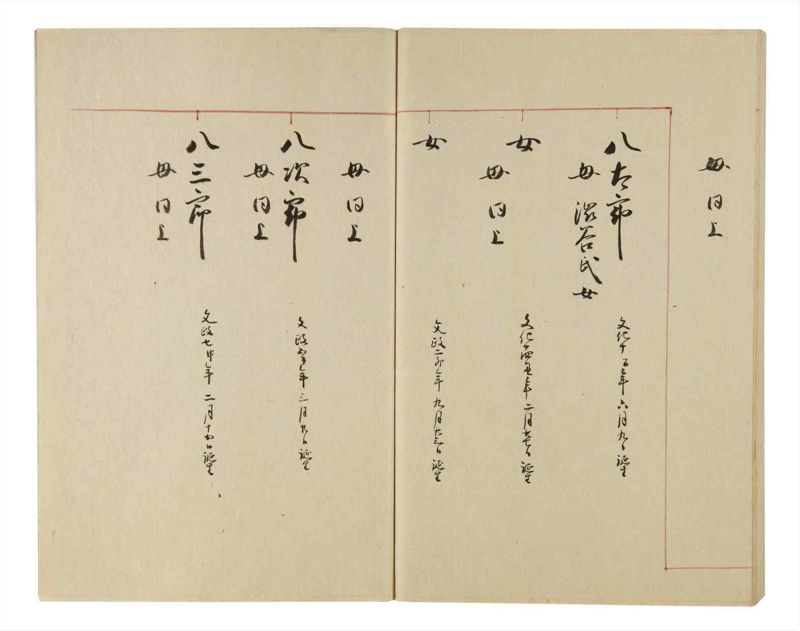 母同上
八太郎
文化十 年六月九日誕生
母澁谷氏女
女
文化十四丑年二月 日誕生
母同上
女
文政二卯年九月廿三日誕生
母同上
八次郎
文政 年三月 日誕生
母同上
八三郎
文政七申年二月十四日誕生
母同上